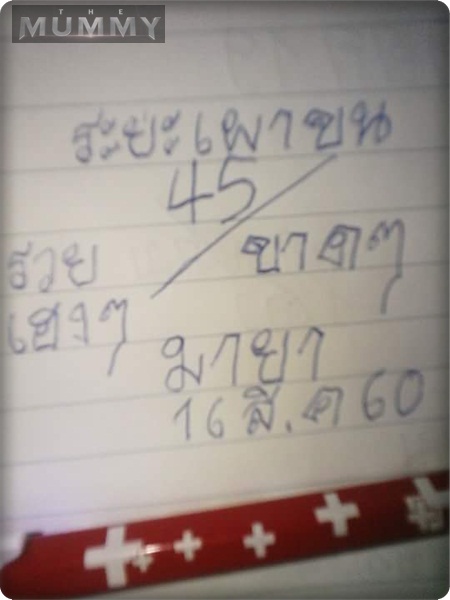 THE
MUMMY
ระยะเผาขน
45
รวย
เฮงๆ
ขาดๆ
มายา
16 ส.ค 60